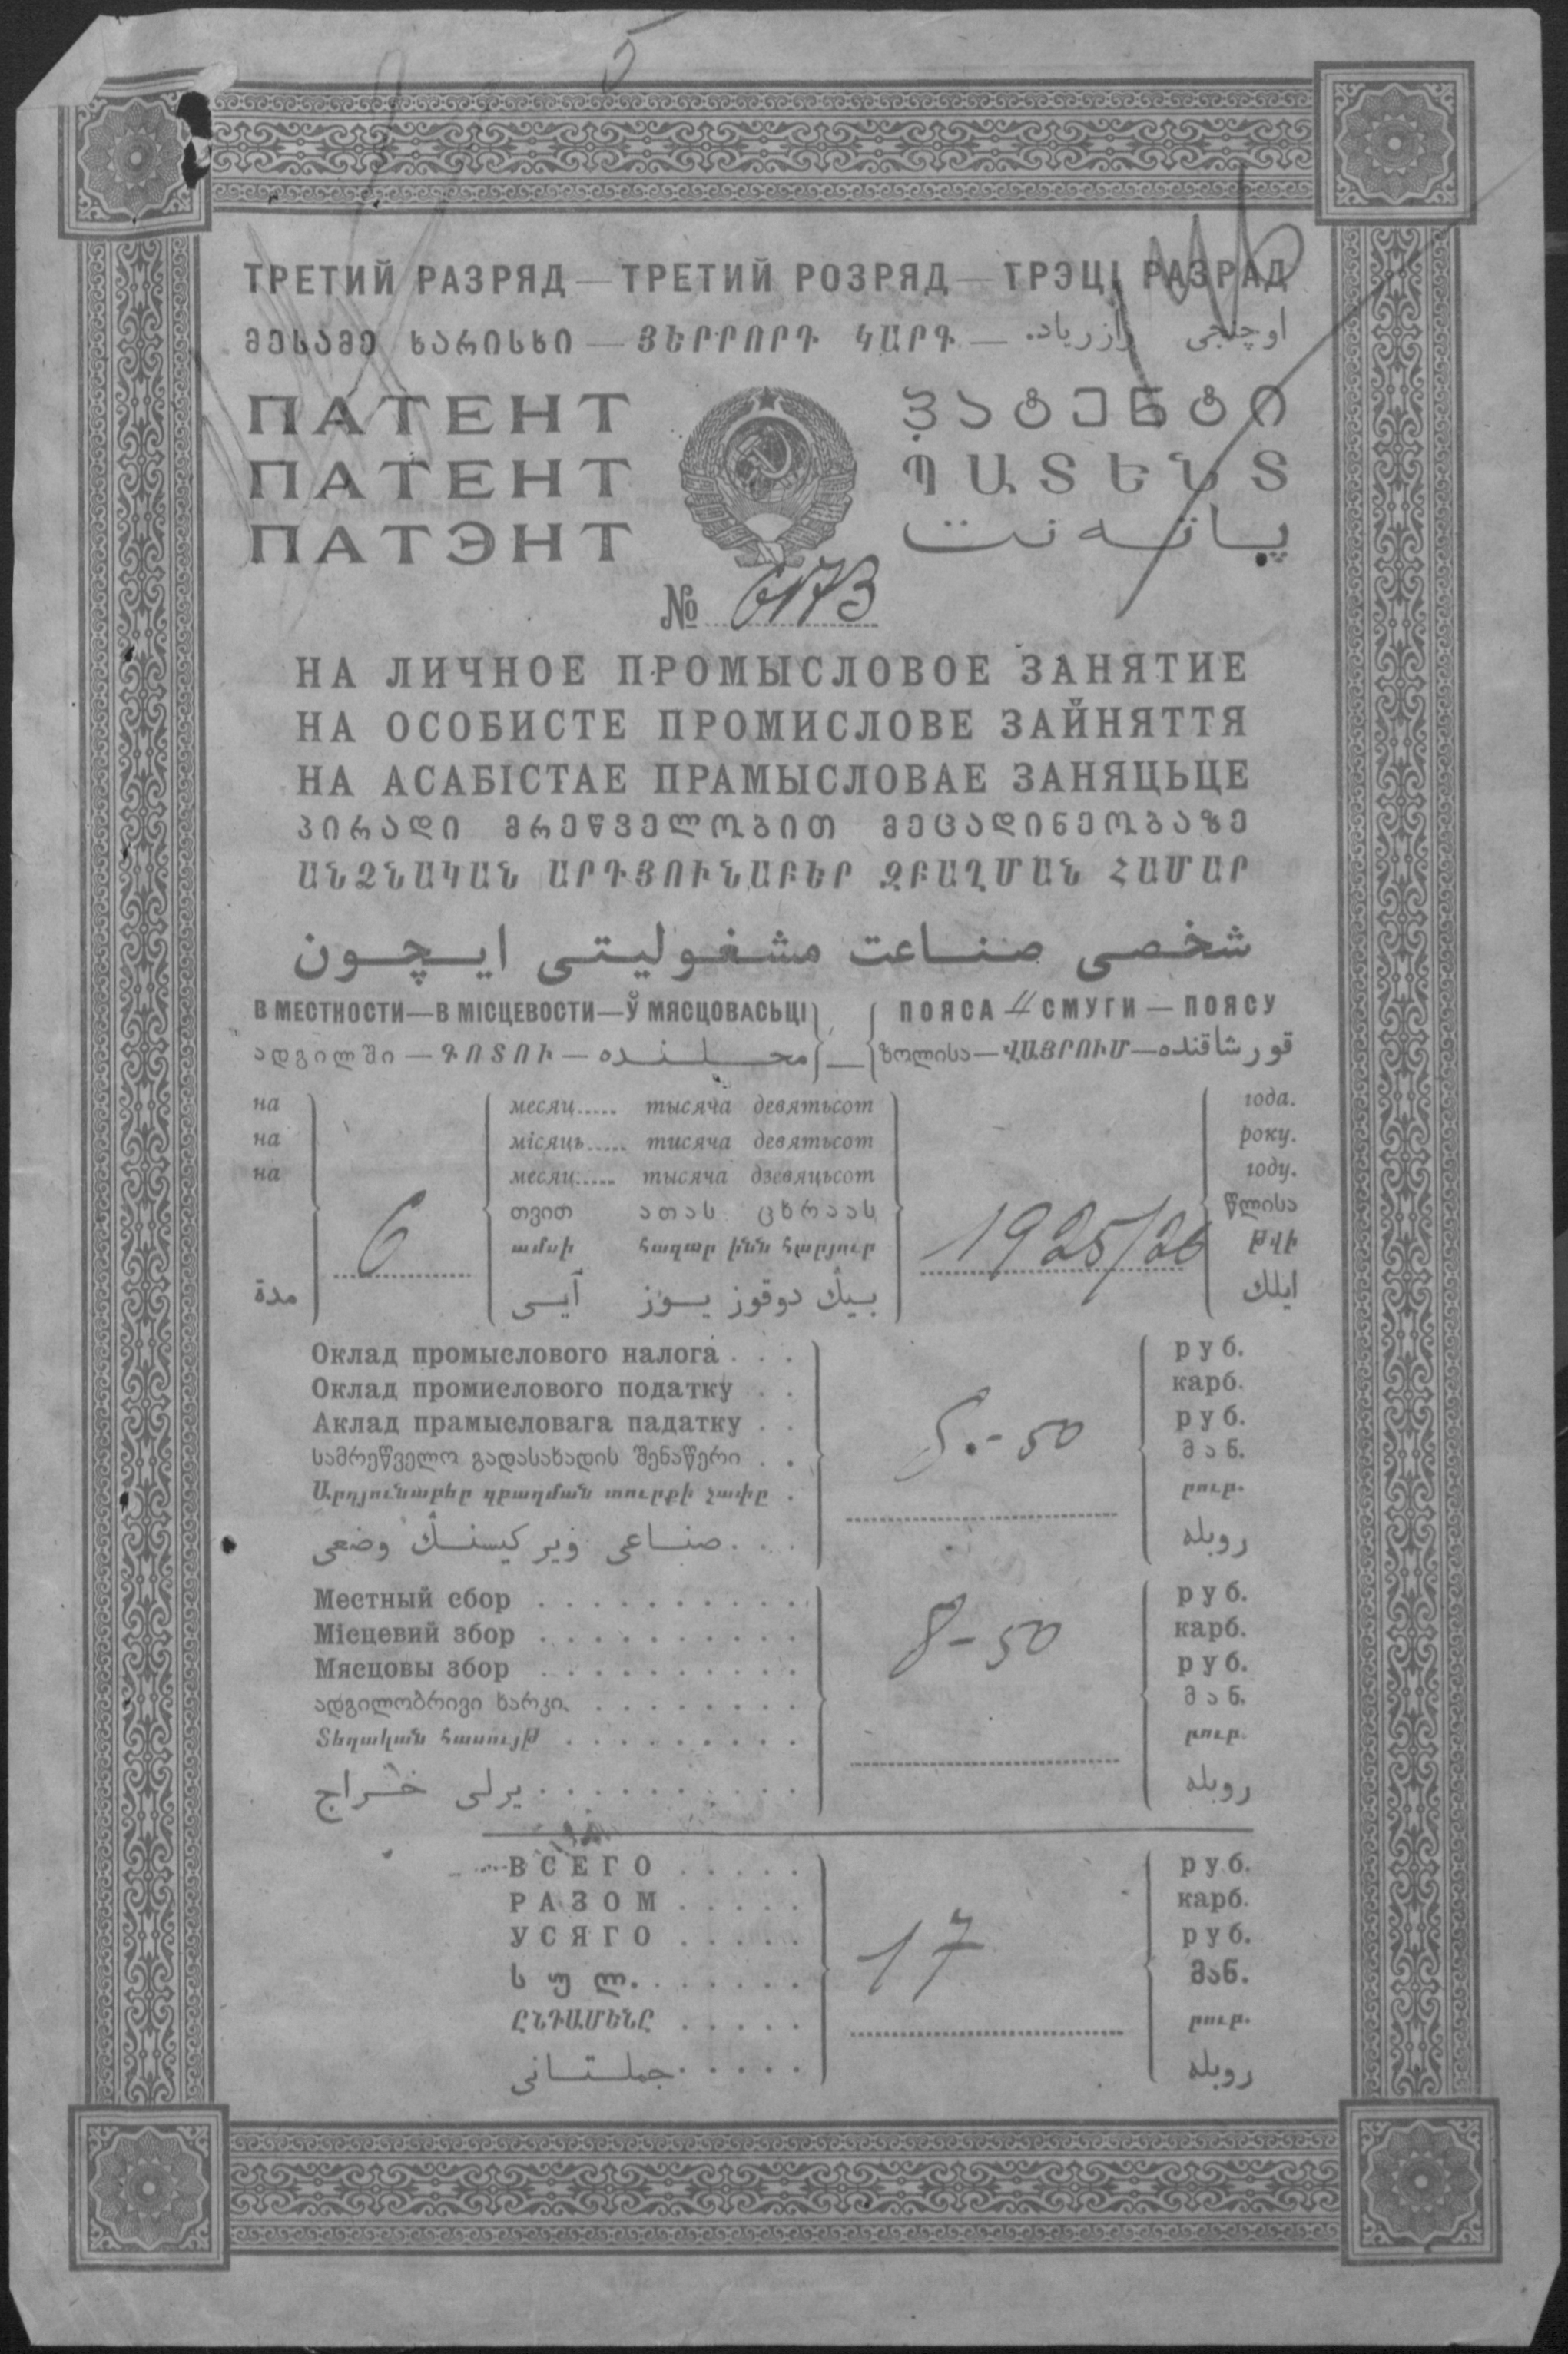 5
ТРЕТИЙ РАЗРЯД — ТРЕТИЙ РОЗРЯД — ТРЭЦІ РАЗРАД
მესამე ხარისხი — ՅԵՐՐՈՐԴ ԿԱՐԳ — اوچنجی رازریاد.
ПАТЕНТ პატენტი
ПАТЕНТ ՊԱՏԵՆՏ
ПАТЭНТ پاتەنت
№ 6173
НА ЛИЧНОЕ ПРОМЫСЛОВОЕ ЗАНЯТИЕ
НА ОСОБИСТЕ ПРОМИСЛОВЕ ЗАЙНЯТТЯ
НА АСАБІСТАЕ ПРАМЫСЛОВАЕ ЗАНЯЦЬЦЕ
პირადი მრეწველობით მეცადინეობაზე
ԱՆՁՆԱԿԱՆ ԱՐԴՅՈՒՆԱԲԵՐ ԶԲԱՂՄԱՆ ՀԱՄԱՐ
شخصی صناعت مشغولیتی ایچون
В МЕСТНОСТИ — В МІСЦЕВОСТИ — Ў МЯСЦОВАСЬЦІ ПОЯСА II СМУГИ — ПОЯСУ
ადგილში — ԳՈՏՈՒ — محلنده — ზოლისა — ՎԱՅՐՈՒՄ — قورشاقنده
на месяц..... тысяча девятьсот года.
на місяць..... тисяча девятьсот року.
на месяц..... тысяча дзевяцьсот году.
თვით ათას ცხრაას წლისა
6 ամսի հազար ինն հարյուր 1925/26 թվի
مدة آیی بیڭ دوقوز یوز ایللك
Оклад промыслового налога . . . руб.
Оклад промислового податку . . карб.
Аклад прамысловага падатку . . руб.
8.-50
სამრეწველო გადასახადის შენაწერი . . მან.
Արդյունաբեր զբաղման տուրքի չափը . րուբ.
صناعی ویركیسنڭ وضعی . . . روبله
Местный сбор . . . . . . . . . . руб.
Місцевий збор . . . . . . . . . . карб.
8-50
Мясцовы збор . . . . . . . . . . руб.
ადგილობრივი ხარკი . . . . . . . . მან.
Տեղական հասույթ . . . . . . . . . րուբ.
یرلی خراج . . . . . . . . . . روبله
ВСЕГО . . . . . руб.
РАЗОМ . . . . . карб.
УСЯГО . . . . . руб.
17
სულ . . . . . . . მან.
ԸՆԴԱՄԵՆԸ . . . . . րուբ.
جملتانی . . . . . روبله